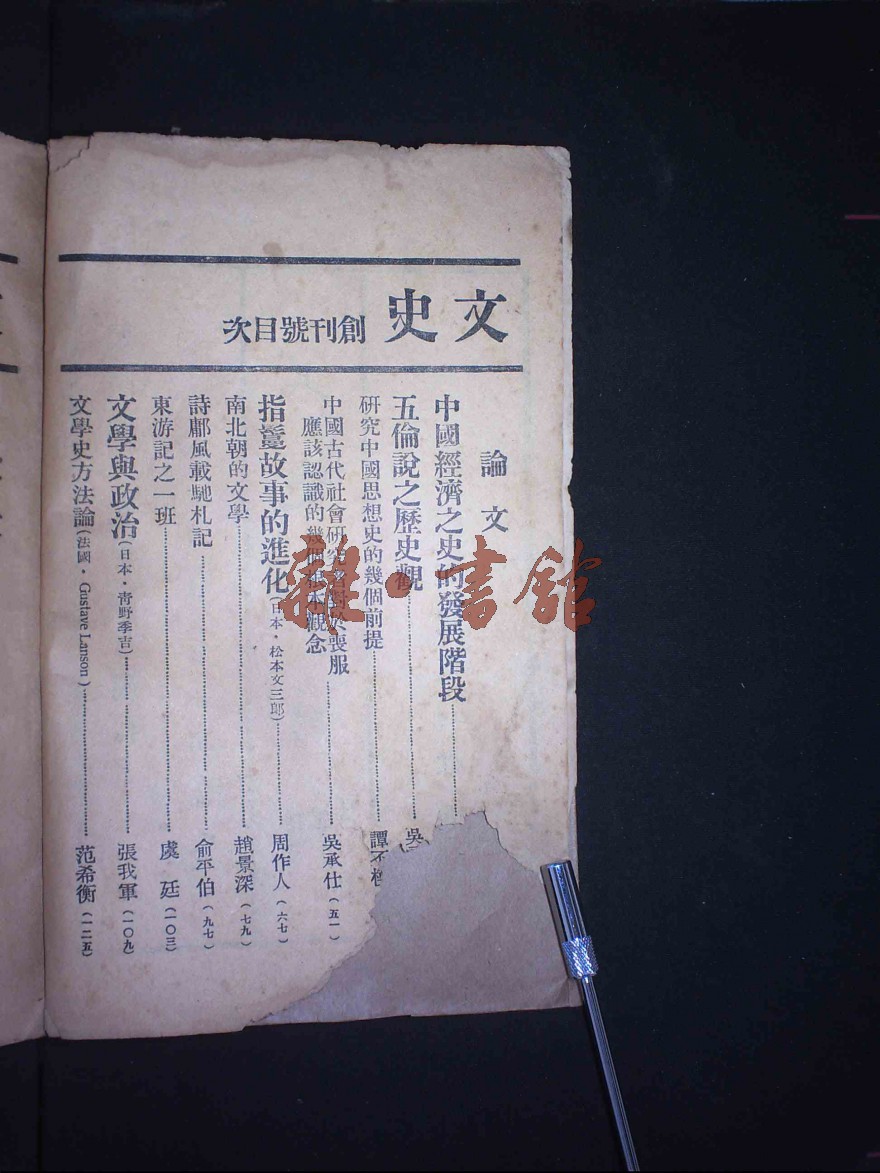 文史 創刊號目次
論文
中國經濟之史的發展階段
五倫說之歷史觀 吳
研究中國思想史的幾個前提 譚丕
中國古代社會研究者對於喪服
應該認識的幾個根本觀念 吳承仕(五一)
指鬘故事的進化(日本・松本文三郎) 周作人(六七)
南北朝的文學 趙景深(七九)
詩鄘風載馳札記 俞平伯(九七)
東游記之一班 虞廷(一〇三)
文學與政治(日本・青野季吉) 張我軍(一〇九)
文學史方法論(法國・Gustave Lanson) 范希衡(一二五)
雜・書館